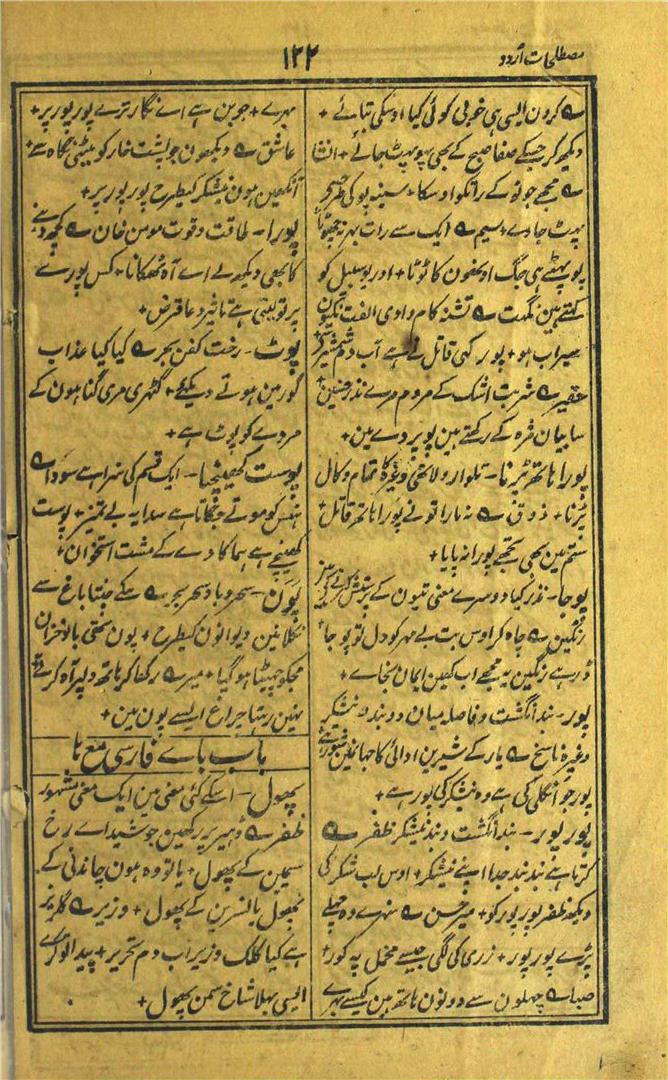 مصطلحات اردو
۱۲۲
ے کرون ایسی ہی خوبی کوئی کیا اوسکی تباے +
دیکھ کر جسکے صفا صبح کے بھی پو پہٹ جاے + انشا
ے مجھے جو نو کے رانگوا وسکا + سینہ پو کی طرح
پہٹ جاوے + نسیم ے ایک سے رات بہر نہ چھوٹا
پو پہٹے ہی جگ اونھون کا ٹوٹا + اور بوسبیل کو
کہتے ہین نگہت ے تشنہ کام وادی الفت
سیراب ہو + پور کہی قاتل نے ہے آب دم شمشیر
حقیر ے شربت اشک کے مردم مرے نذر حسین +
سابیان مژہ کے رکھتے ہین پو پر دے مین +
پورا ہاتھ پڑنا - تلوار ولاٹھی وغیرہ کا تمام وکمال
پڑنا + ذوق ے نہ مارا تونے پورا ہاتھ قاتل +
ستم مین بھی تجھے پورا نہ پایا +
پوجا - نذر کیا دوسرے معنی بتون کے پرستش کرنے کی
رنگین ے چاہ کر اوس بت بے مہر کو دل تو پوجا
ڈر ہے رنگین یہ مجھے اب کہین ایمان نجاے +
پور - بند انگشت و فاصلہ میان دو بند نیشکر
وغیرہ ناسخ ے یار کے شیرین ادائی کا جہانمین شور ہے
پور جو انگلی کی ہے وہ نیشکر کی پور ہے +
پور پور - بند انگشت و بند نیشکر ظفر ے
کرتا ہے بند بند جدا اپنے نیشکر + اوس لب شکر کی
دیکھ ظفر پور پور کو + میر حسن ے سنہرے وہ چھلے
پڑے پور پور + زری کی لگی جیسے مخمل پہ کور +
صبا ے چھلون سے دونون ہاتھ ہین کیسے بہرے
بہرے + جوبن ہے اے نگار ترے پور پور پر +
عاشق ے دیکھون جو پشت خار کو میٹھی نگاہ سے +
آنکھین ہون نیشکر کیطرح پور پور پر +
پورا - طاقت و قوت مومن خان ے کچھ دلینے
کا بھی دیکھ لے اے آہ ٹھکانا + کس پورے
پر تو لیتی ہے تاثیر دعا قرض +
پوٹ - رخت کفن بحر ے کیا کیا عذاب
گور مین ہوتے دیکھیے + گٹھری مری گناہون کے
مردے کو پوٹ ہے +
پوست کھینچنا - ایک قسم کی سزا ہے سودا ے
ہنس کو موتے چگاتا ہے سدا یہ بے تمیز + پوست
کھینچے ہے ہما کا دے کے مشت استخوان +
پون - سحر و باد سحر بحر ے سکے جنتا باغ سے
نکلا نمین دیوانون کیطرح + پون تھی بادِ خزان
مجکو جھپیٹا ہوگیا + میر ے رکھا کر ہاتھ دلپر آہ کرتے
نہین رہتا چراغ ایسے پون مین +
باب باے فارسی مع ہا
پھول - اسکے کئی معنی ہین ایک معنی مشہور
ظفر ے ڈہیر پر رکھین جو شیداے رخ
سیمین کے پھول + یا تو وہ ہون چاندنی کے
پھول یا نسرین کے پھول + وزیر ے گلریز
ہے کیا کلک وزیر اب دم تحریر + پیدا تو کرے
ایسی بہلا شاخ سمن پھول +